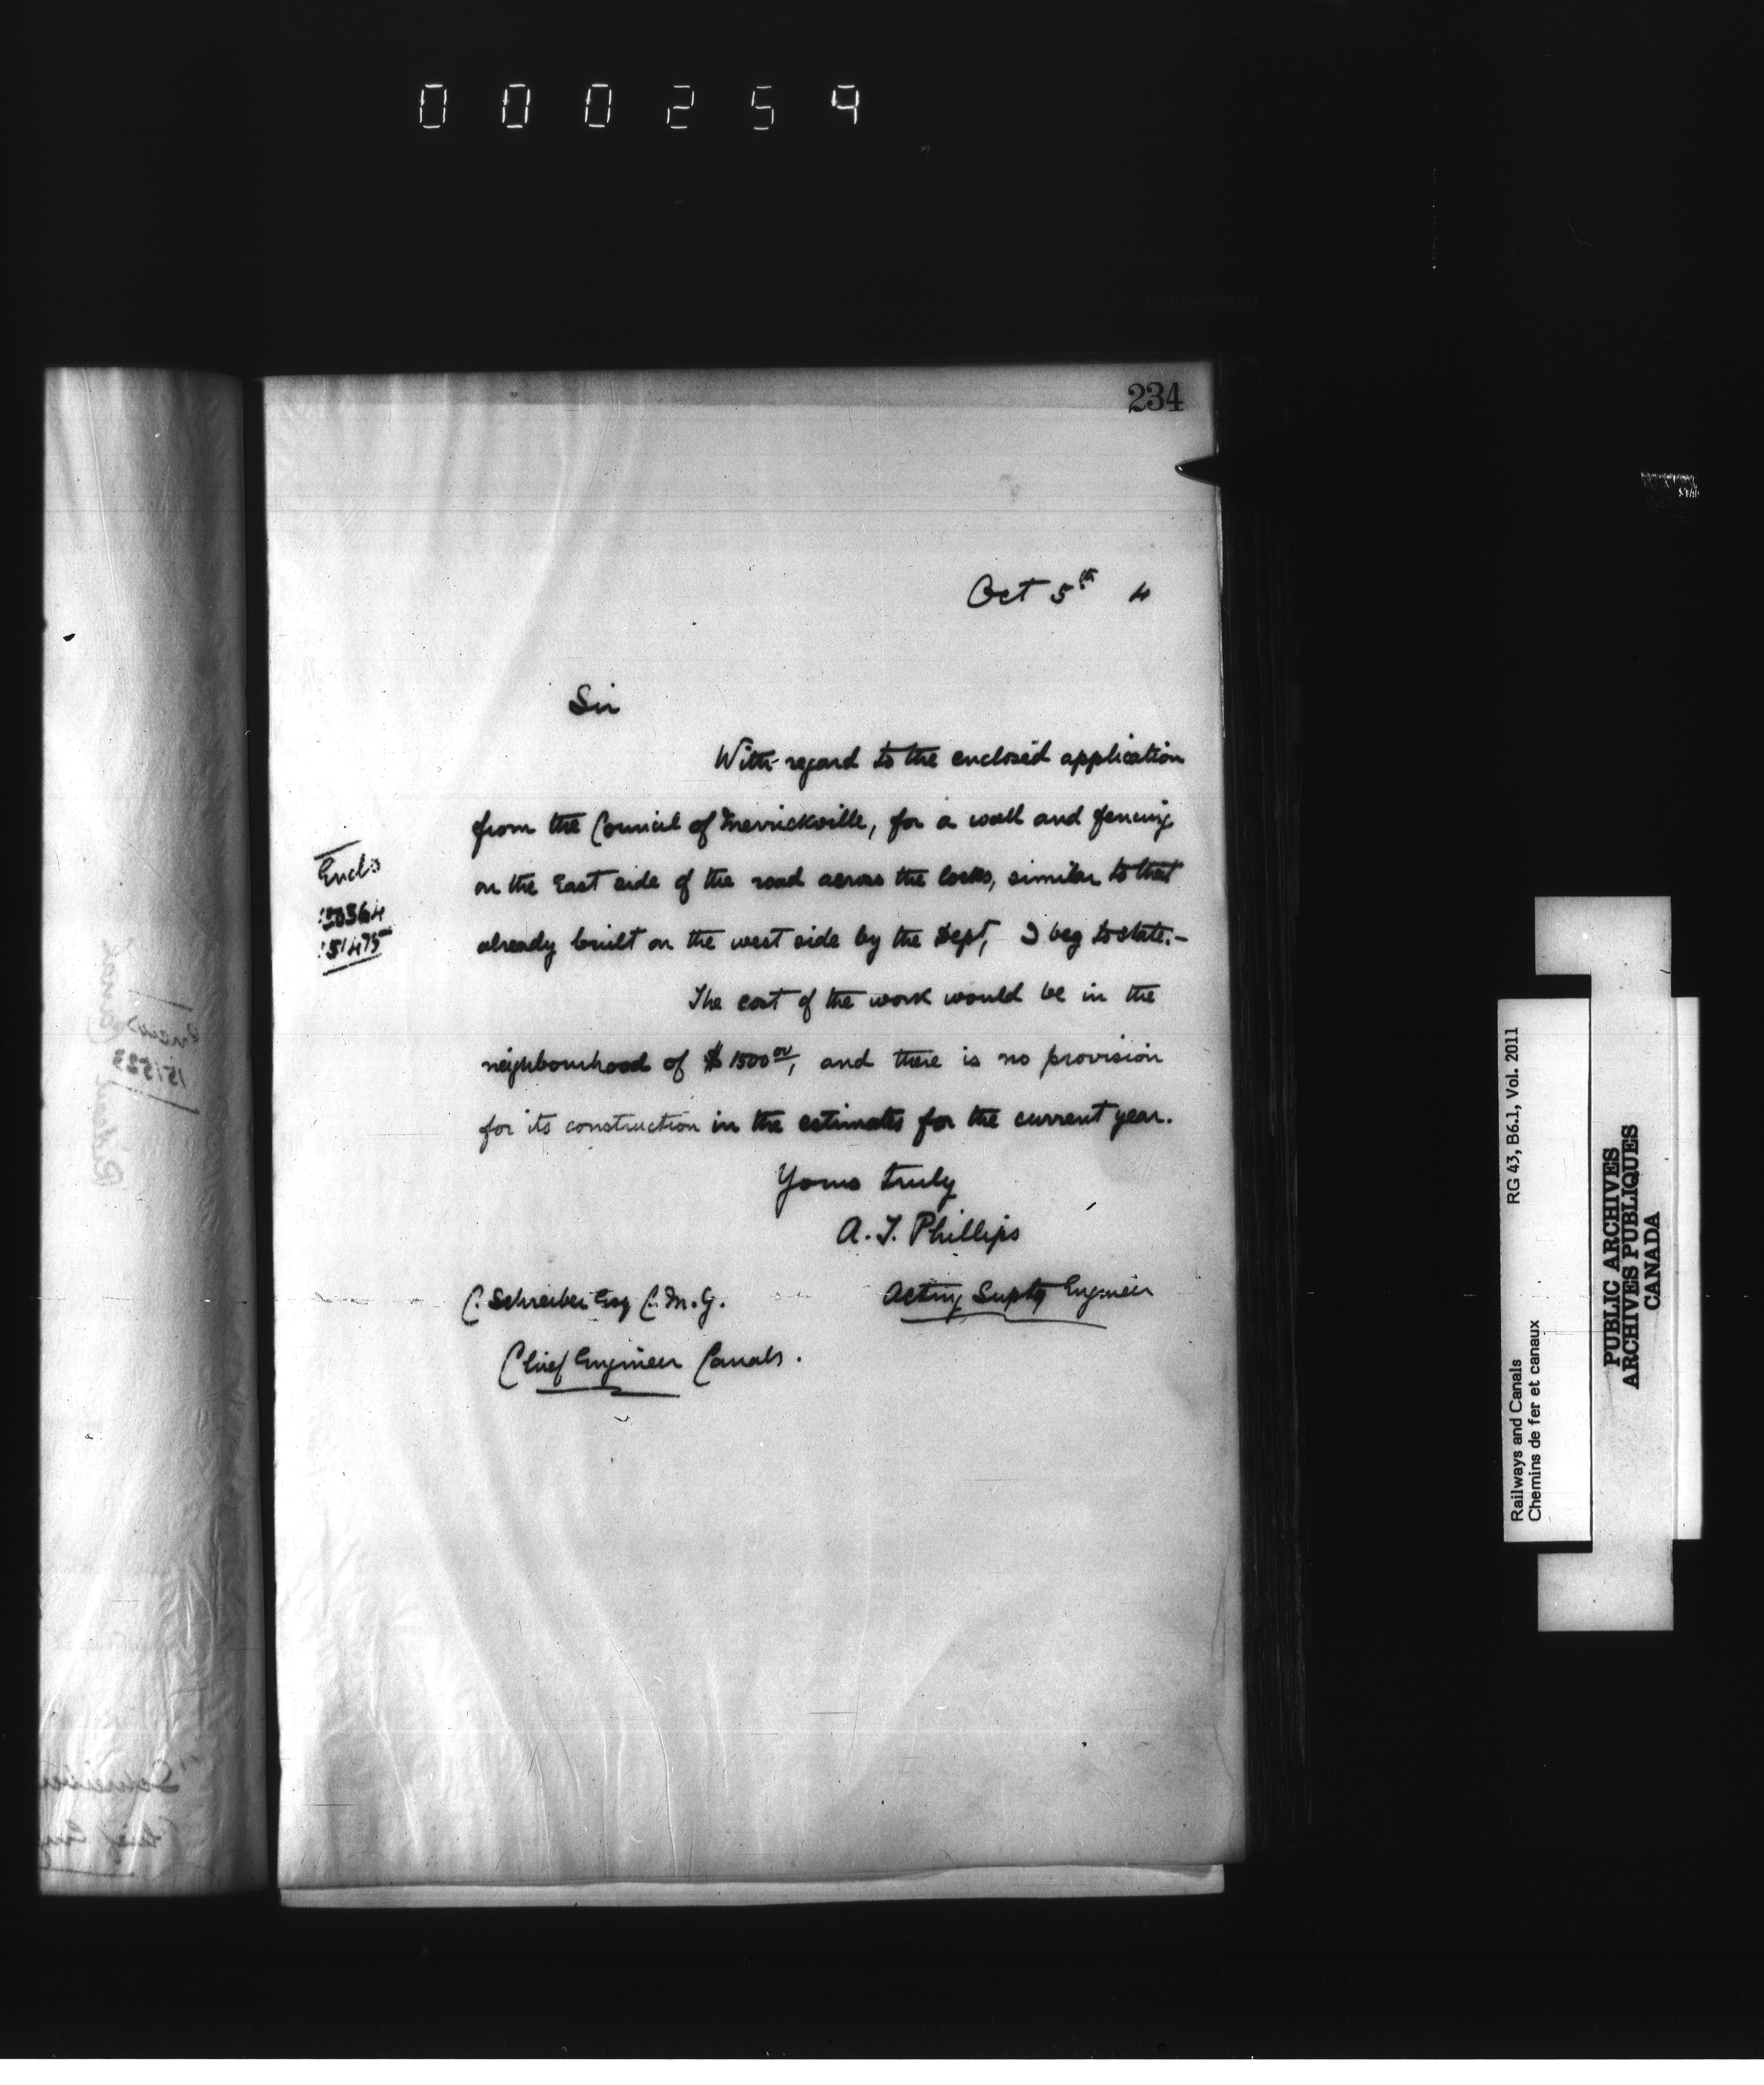 000259
234
Oct 5th 4
Sir
With regard to the enclosed application
from the Council of Merrickville, for a wall and fencing
on the East side of the road across the locks, similar to that
already built on the west side by the Dept, I beg to state:-
Encls
150364
151475
The cost of the work would be in the
neighbourhood of $1500 00/, and there is no provision
for its construction in the estimates for the current year.
Yours truly
A. T. Phillips
Acting Suptg Engineer
C. Schreiber Esq C.M.G.
Chief Engineer Canals.
Rideau Canal
151523
Schreiber
Chief Eng
Railways and Canals RG 43, B6.1, Vol. 2011
Chemins de fer et canaux
PUBLIC ARCHIVES
ARCHIVES PUBLIQUES
CANADA